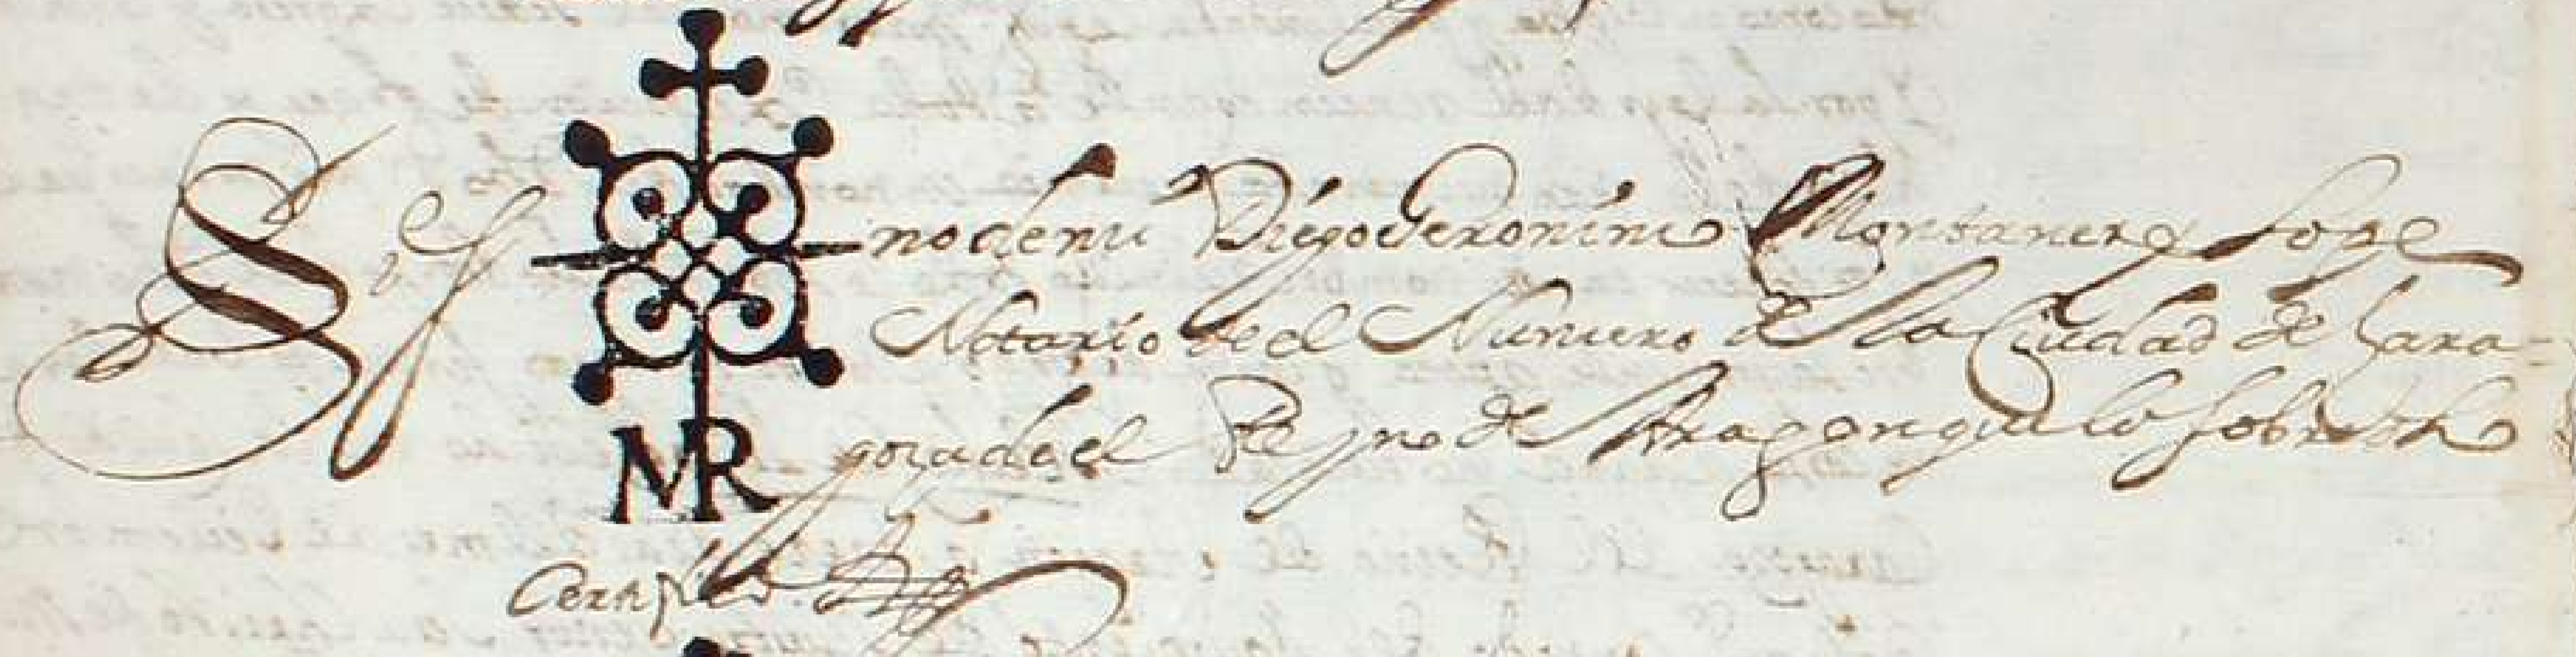 Sig no de mi Diego Geronimo Montaner y Lope
Notario de el Numero de la Ciudad de Zara-
MR goza de el Reyno de Aragon que lo sobredicho
Certifico